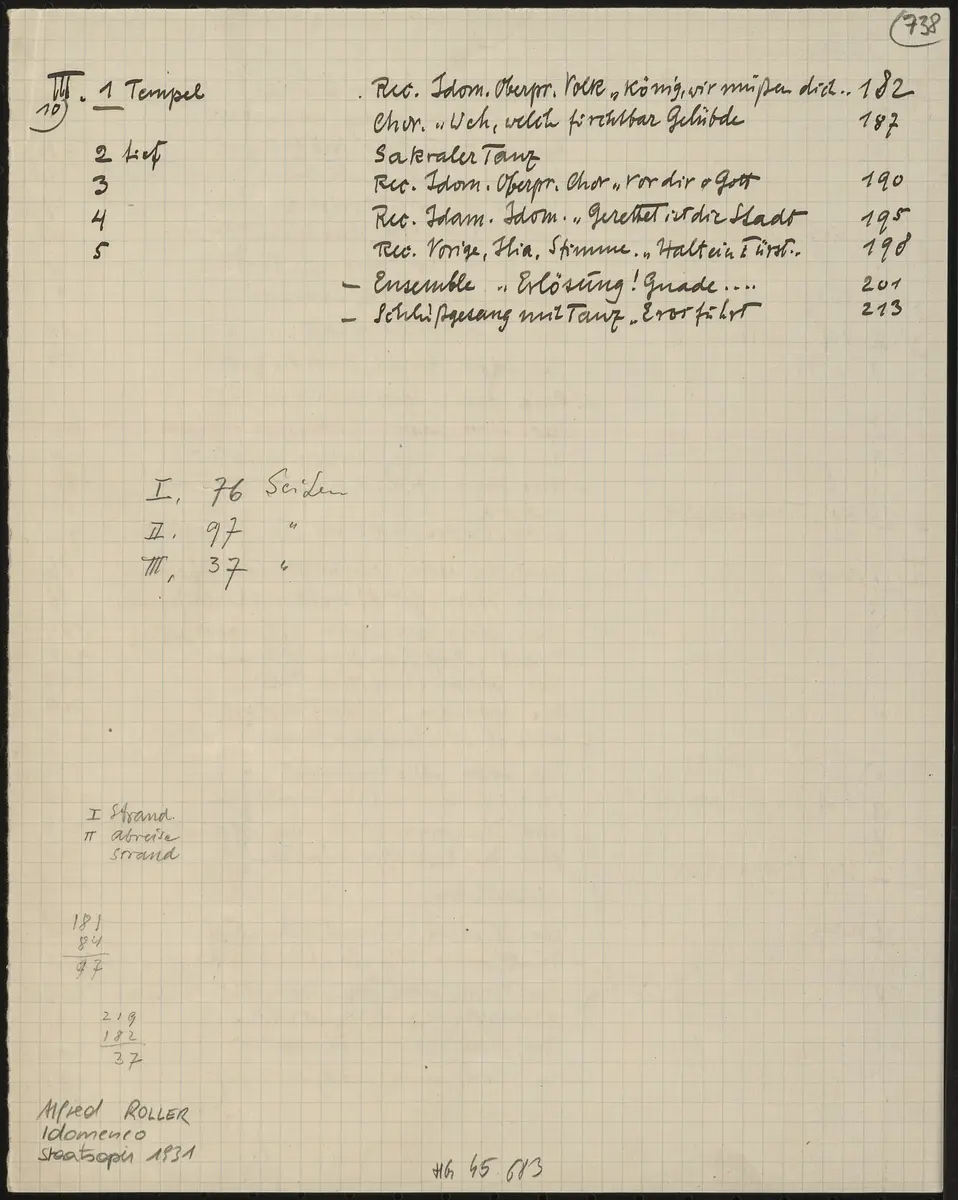 738
III. 1 Tempel Rec. Idom. Oberpr. Volk „König, wir müßen dich.. 182
10) Chor. „Weh, welch furchtbar Gelübde 187
2 tief Sakraler Tanz
3 Rec. Idom. Oberpr. Chor „Vor dir o Gott 190
4 Rec. Idam. Idom. „Gerettet ist die Stadt 195
5 Rec. Vorige, Ilia, Stimme. „Halt ein Fürst.. 198
– Ensemble „Erlösung! Gnade .... 201
– Schlußgesang mit Tanz „Eros führt 213
I. 76 Seiten
II. 97 "
III. 37 "
I Strand.
II abreise
strand
181
84
97
219
182
37
Alfred ROLLER
Idomeneo
Staatsoper 1931
HG 45 683